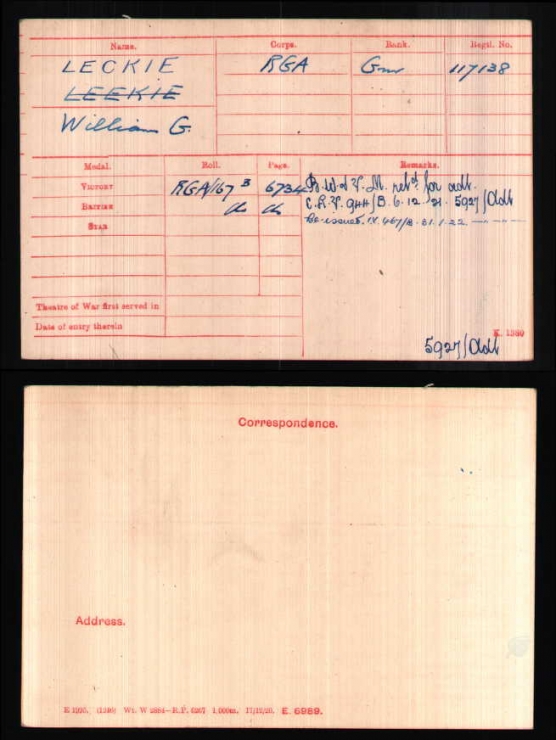 Name. Corps. Rank. Regtl. No.
LECKIE RGA Gnr 117138
LEEKIE
William G.
Medal. Roll. Page. Remarks.
VICTORY RGA/167 B 6734 B.W. & V. M. retd for adt.
BRITISH do do C.R.V. 944/B. 6.12.21. 5927/Adt
STAR Re-issued. IV. 467/B. 31.1.22
Theatre of War first served in
Date of entry therein
K. 1380
5927/Adt
Correspondence.
Address.
E 1920. Wt. W 2884—R.P. 6267 1,000m. 17/12/20. E. 6989.